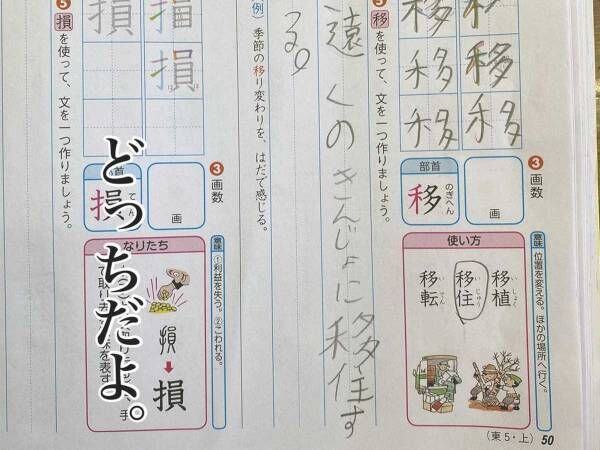 移
移
移
移
移
移
❸画数
画
部首
のぎへん
移
意味 位置を変える。ほかの場所へ行く。
使い方
移植
移住
移転
移を使って、文を一つ作りましょう。
遠くのきんじょに移住す
る。
例) 季節の移り変わりを、はだで感じる。
損
損
損
❸画数
画
損
意味 ①利益を失う。②こわれる。
なりたち
損
損
損を使って、文を一つ作りましょう。
どっちだよ。
(東5・上) 50